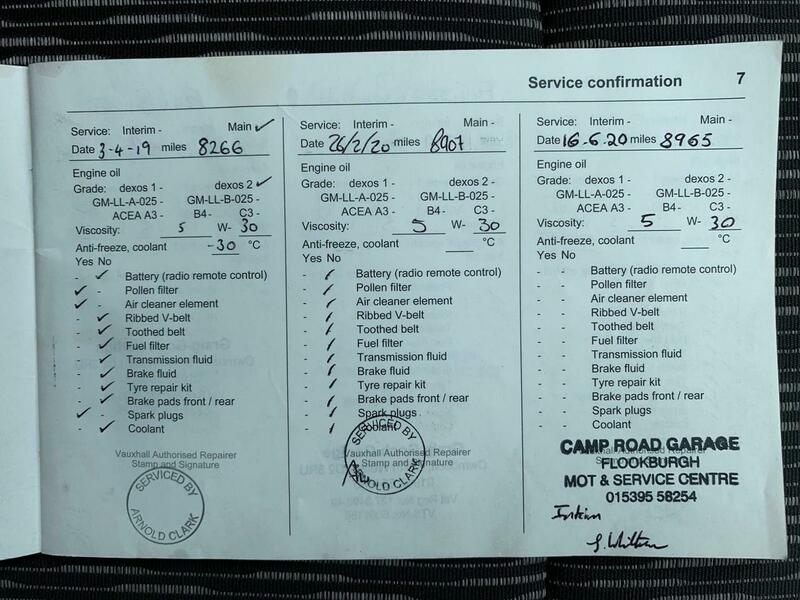 Service confirmation 7
Service: Interim - Main ✓
Date 3-4-19 miles 8266
Engine oil
Grade: dexos 1 - dexos 2 ✓
GM-LL-A-025 - GM-LL-B-025 -
ACEA A3 - B4 - C3 -
Viscosity: 5 W- 30
Anti-freeze, coolant -30 °C
Yes No
- ✓ Battery (radio remote control)
✓ - Pollen filter
✓ - Air cleaner element
- ✓ Ribbed V-belt
- ✓ Toothed belt
- ✓ Fuel filter
- ✓ Transmission fluid
- ✓ Brake fluid
- ✓ Tyre repair kit
- ✓ Brake pads front / rear
✓ - Spark plugs
- ✓ Coolant
Vauxhall Authorised Repairer
Stamp and Signature
SERVICED BY
ARNOLD CLARK
Service: Interim - Main -
Date 26/2/20 miles 8907
Engine oil
Grade: dexos 1 - dexos 2 -
GM-LL-A-025 - GM-LL-B-025 -
ACEA A3 - B4 - C3 -
Viscosity: 5 W- 30
Anti-freeze, coolant °C
Yes No
- ✓ Battery (radio remote control)
- ✓ Pollen filter
- ✓ Air cleaner element
- ✓ Ribbed V-belt
- ✓ Toothed belt
- ✓ Fuel filter
- ✓ Transmission fluid
- ✓ Brake fluid
- ✓ Tyre repair kit
- ✓ Brake pads front / rear
- ✓ Spark plugs
- ✓ Coolant
Vauxhall Authorised Repairer
Stamp and Signature
SERVICED BY
ARNOLD CLARK
Service: Interim - Main -
Date 16-6-20 miles 8965
Engine oil
Grade: dexos 1 - dexos 2 -
GM-LL-A-025 - GM-LL-B-025 -
ACEA A3 - B4 - C3 -
Viscosity: 5 W- 30
Anti-freeze, coolant °C
Yes No
- - Battery (radio remote control)
- - Pollen filter
- - Air cleaner element
- - Ribbed V-belt
- - Toothed belt
- - Fuel filter
- - Transmission fluid
- - Brake fluid
- - Tyre repair kit
- - Brake pads front / rear
- - Spark plugs
- - Coolant
Vauxhall Authorised Repairer
CAMP ROAD GARAGE
FLOOKBURGH
MOT & SERVICE CENTRE
015395 58254